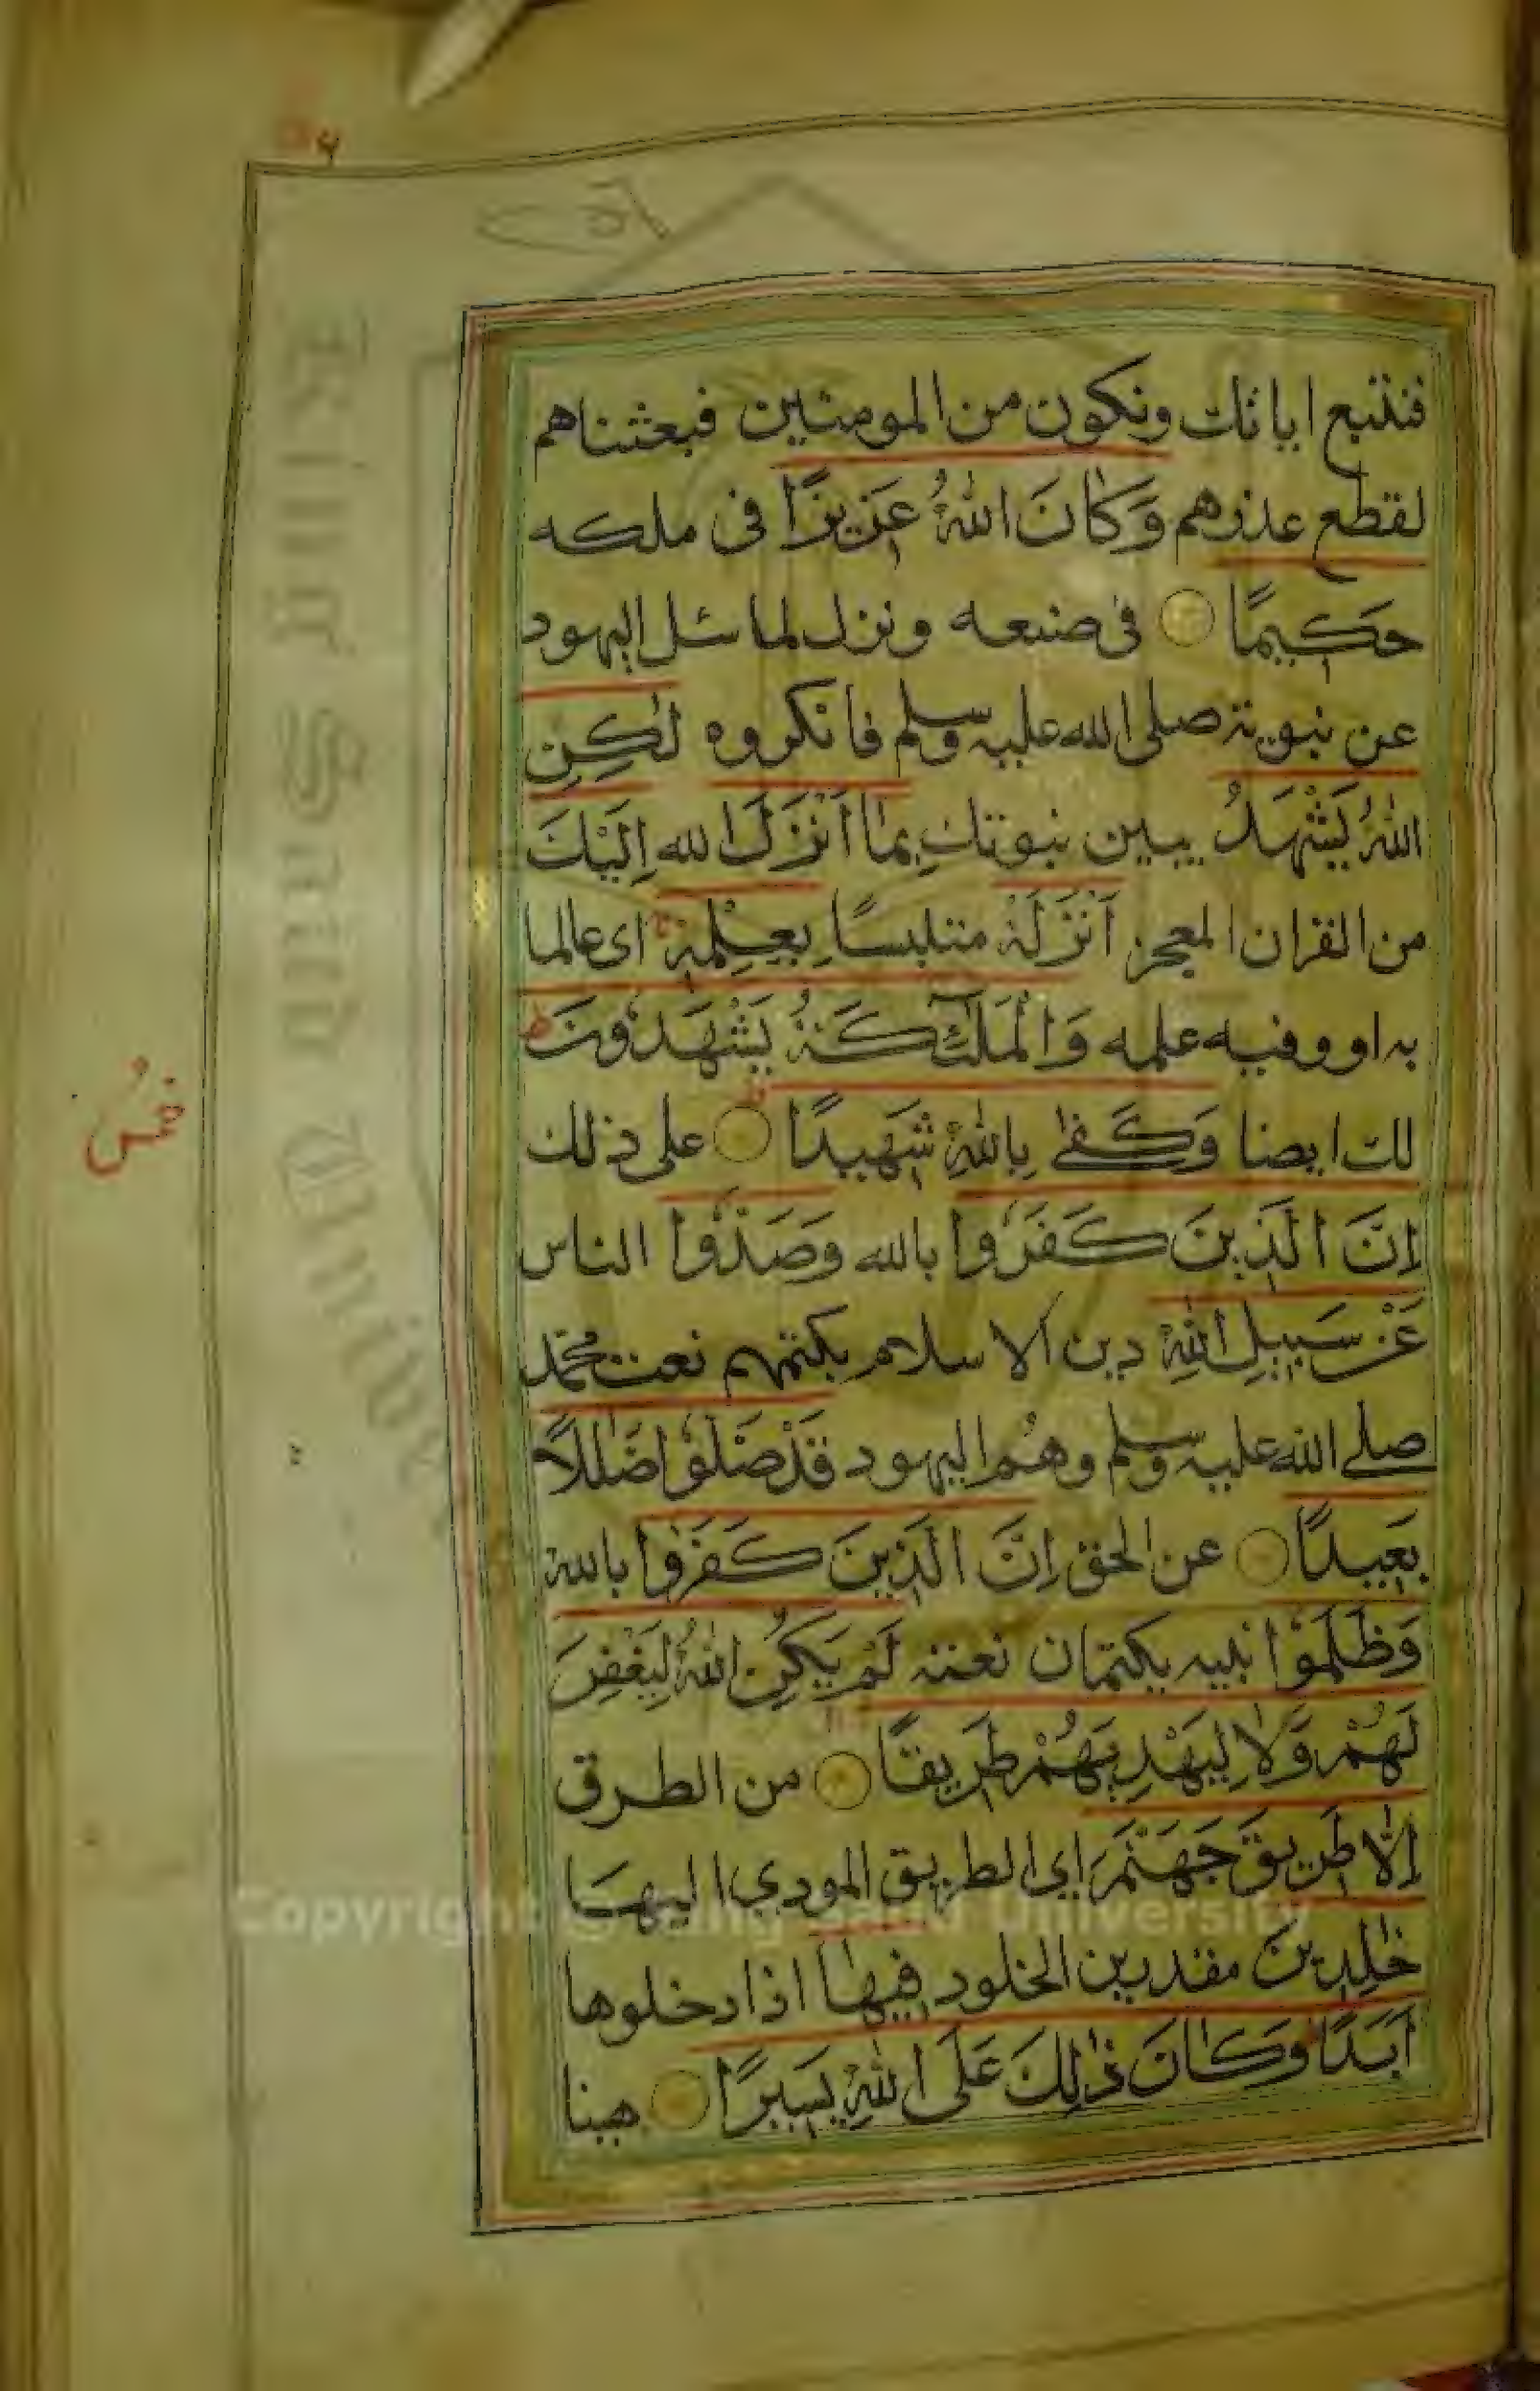 فنتبع اياتك ونكون من المومنين فبعثناهم
لقطع عذرهم وَكَانَ اللّٰهُ عَزِيزًا في ملكه
حَكِيمًا في صنعه ونزل لما سئل اليهود
عن نبوته صلى الله عليه وسلم فانكروه لٰكِنِ
اللّٰهُ يَشْهَدُ يبين نبوتك بِمَا اَنْزَلَ الله اِلَيْكَ
من القران المعجز اَنْزَلَهٗ متلبسًا بِعِلْمِهٖ اى عالما
به او وفيه علمه وَالْمَلٰٓئِكَةُ يَشْهَدُونَ ط
لك ايضا وَكَفٰى بِاللّٰهِ شَهِيدًا على ذلك
اِنَّ الَّذِينَ كَفَرُوا بالله وَصَدُّوا الناس
عَنْ سَبِيلِ اللّٰهِ دين الاسلام بكتمهم نعت محمّد
صلى الله عليه وسلم وهم اليهود قَدْ ضَلُّوا ضَلٰلًا
بَعِيدًا عن الحق اِنَّ الَّذِينَ كَفَرُوا بالله
وَظَلَمُوا نبيه بكتمان نعته لَمْ يَكُنِ اللّٰهُ لِيَغْفِرَ
لَهُمْ وَلَا لِيَهْدِيَهُمْ طَرِيقًا من الطرق
اِلَّا طَرِيقَ جَهَنَّمَ اي الطريق المودي اليها
خٰلِدِينَ مقدرين الخلود فِيهَا اذا دخلوها
اَبَدًا وَكَانَ ذٰلِكَ عَلَى اللّٰهِ يَسِيرًا هينا
خمس
King Saud University
Copyright © King Saud University